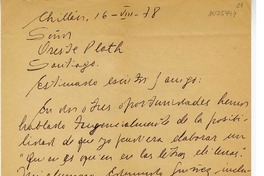 Chillán, 16-VIII-78
Señor
Oreste Plath
Santiago.
Estimado escritor y amigo:
En dos o tres oportunidades hemos
hablado tangencialmente de la posibi-
lidad de que yo pudiera elaborar un
"Quién es quién en las letras chilenas".